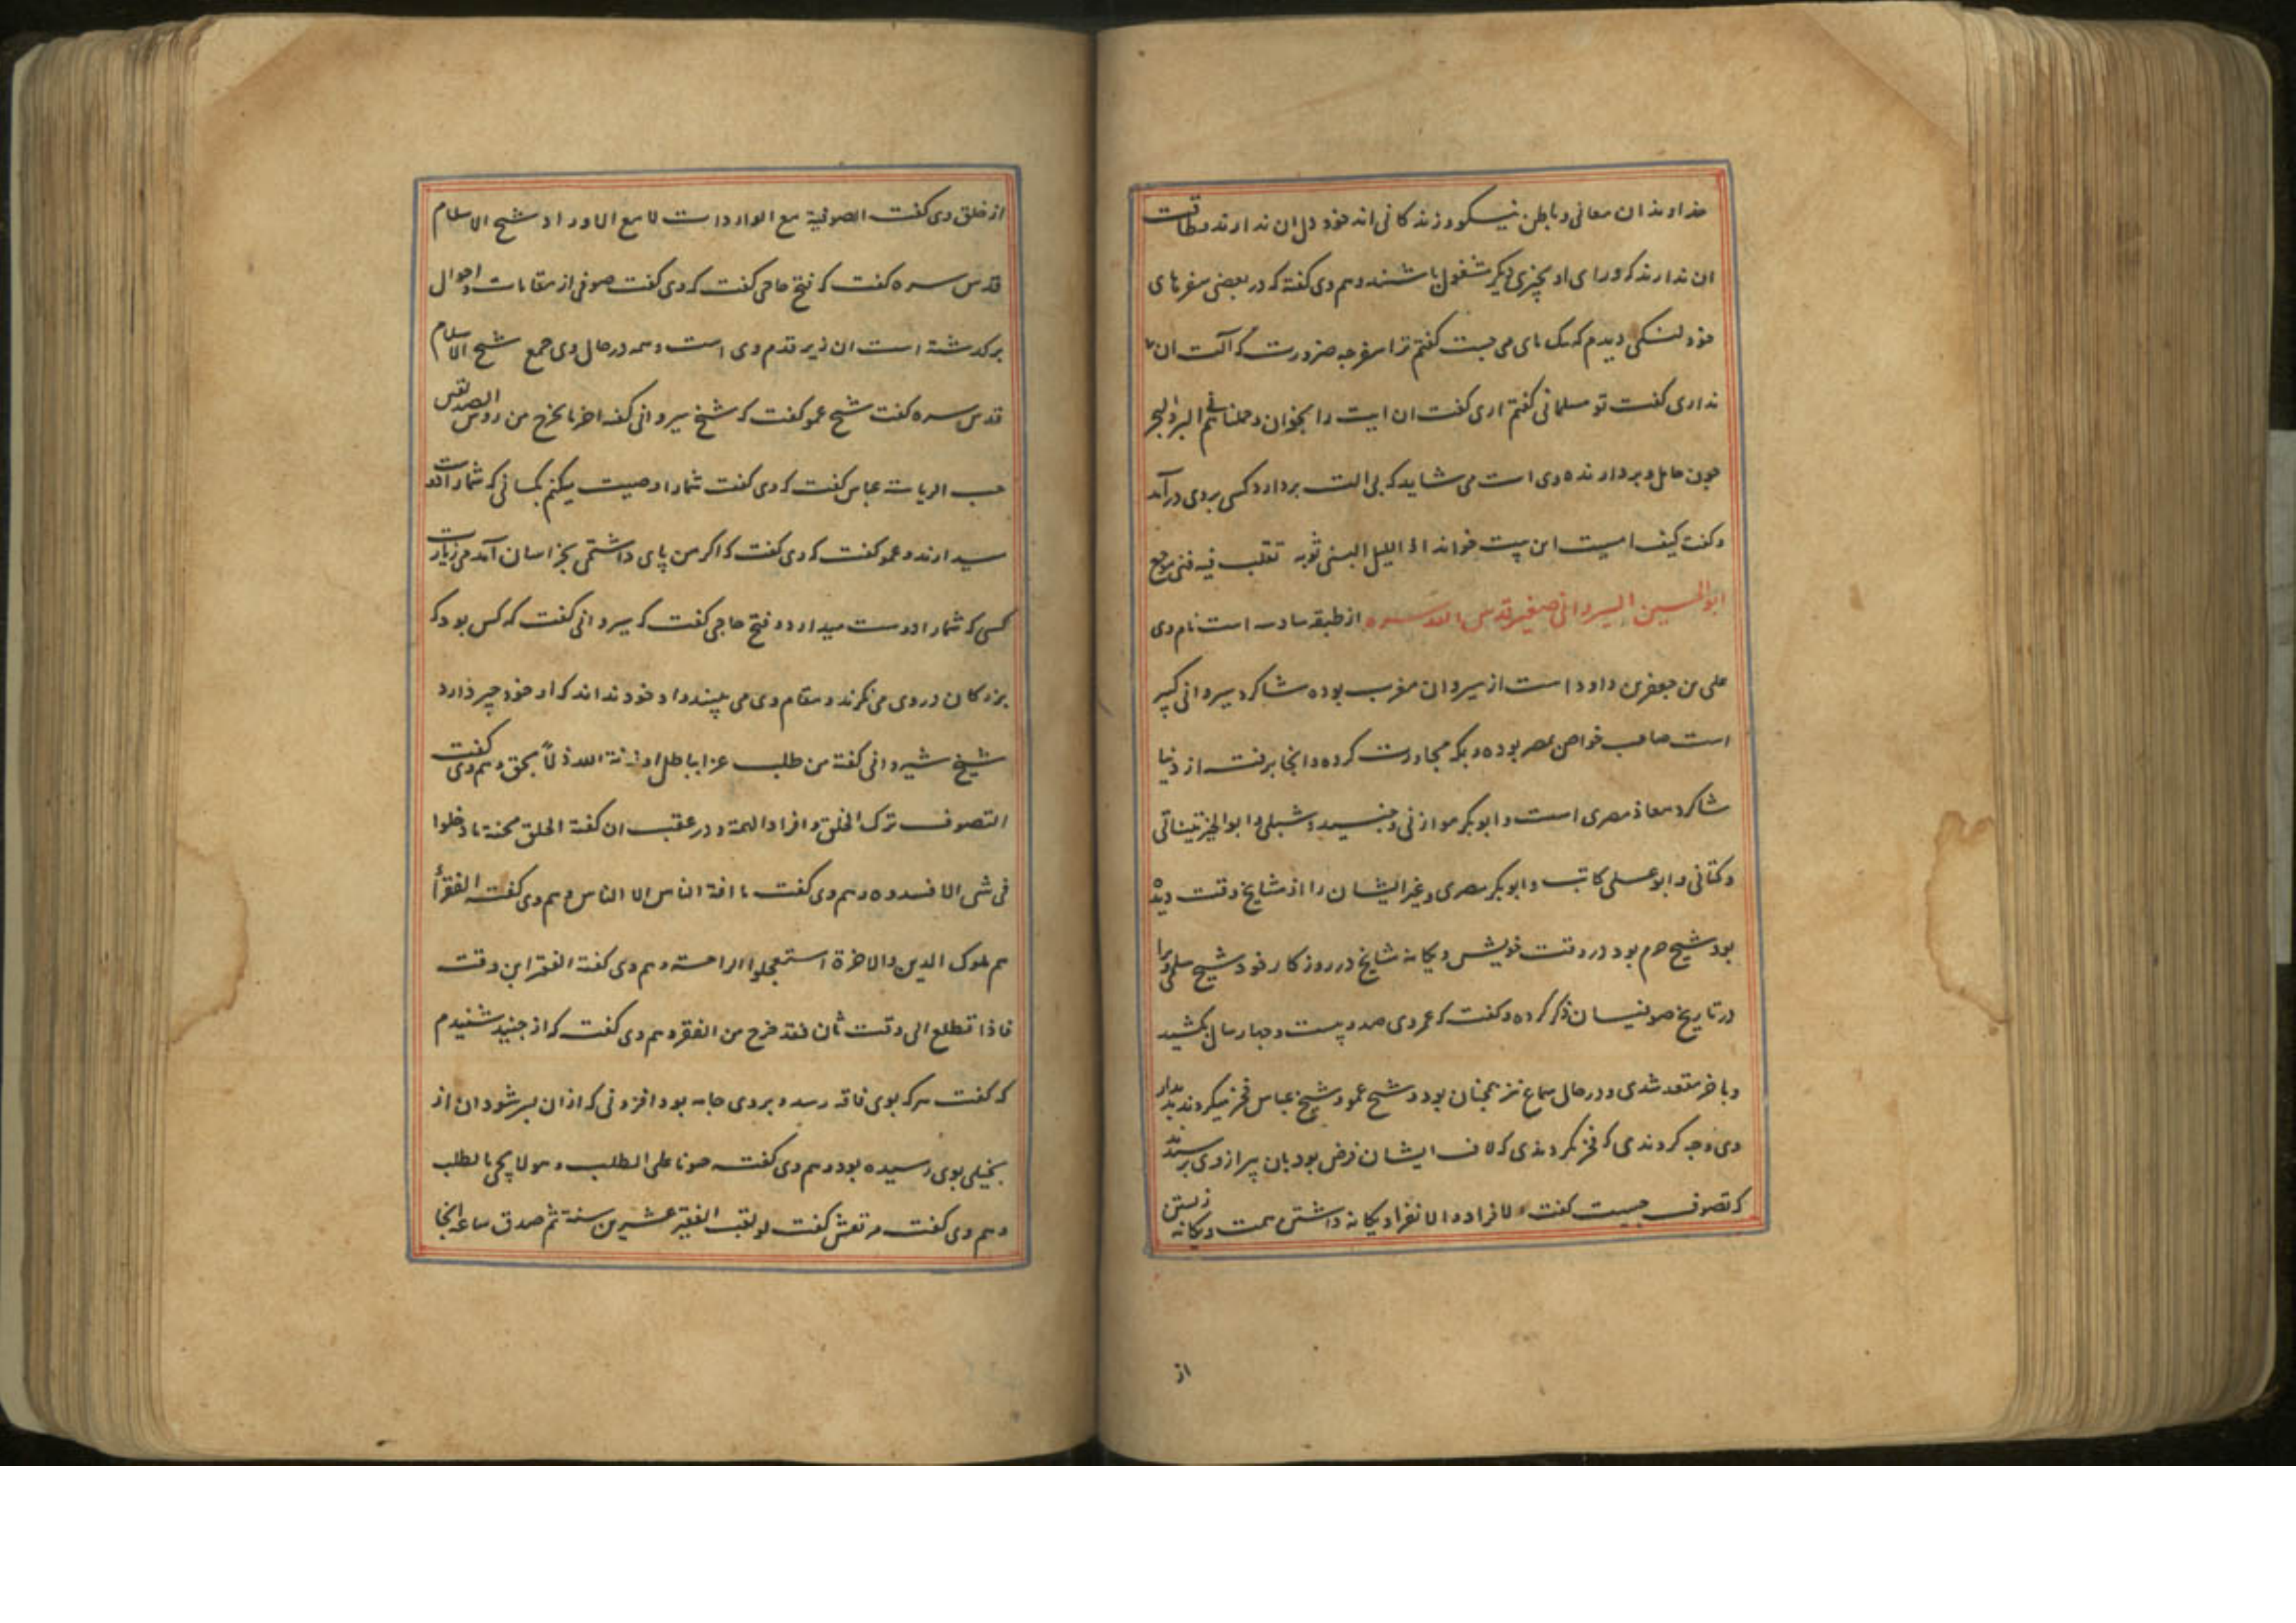 خداوندان معانی و باطن نیکو و زندکانی اند خود دل ان ندارند و طاقت
ان ندارند که ورای او بچیزی دیکر مشغول باشند و هم وی کفته که در بعضی سفرهای
خود لنکی دیدم که بیک پای می جست کفتم ترا سفر چه ضرورت که آلت ان
نداری کفت تو مسلمانی کفتم اری کفت ان ایت را بخوان و حملناهم فی البر والبحر
چون حامل و بردارنده وی است می شاید که بی الت بردارد کسی بر وی درآمد
و کفت کیف امسیت این بیت خواند اذا اللیل البسنی ثوبه تقلب فیه فتی موجع
ابوالحسین السیروانی صغیر قدس الله سره از طبقه سادسه است نام وی
علی بن جعفر بن داود است از سیروان مغرب بوده شاکرد سیروانی کبیر
است صاحب خواص بمصر بوده و بمکه مجاورت کرده و انجا برفت از دنیا
شاکرد معاذ مصری است و ابوبکر موازنی و جنید و شبلی و ابوالخیر تیناتی
و کتانی و ابوعلی کاتب و ابوبکر مصری و غیر ایشان را از مشایخ وقت دیده
بود شیخ حرم بود در وقت خویش و یکانه مشایخ در روزکار خود شیخ سلمی ویرا
در تاریخ صوفیان ذکر کرده و کفت که عمر وی صد و بیست و چهار سال بکشید
و باخر مقعد شدی و در حال سماع نیز همچنان بود و شیخ عمو و شیخ عباس فخر میکردند بدیدار
وی و چه کردندی که فخر نکردندی که لاف ایشان فرض بود بان پیر از وی پرسیدند
که تصوف چیست کفت الافراد و الانفراد یکانه داشتن همت و یکانه زیستن
از
از خلق وی کفت الصوفیة مع الواردات لا مع الاوراد شیخ الاسلام
قدس سره کفت که فتح حاجی کفت که وی کفت صوفی از مقامات و احوال
برکذشته است ان زیر قدم وی است و همه در حال وی جمع شیخ الاسلام
قدس سره کفت شیخ عمو کفت که شیخ سیروانی کفته اخر ما یخرج من روس الصدیقین
حب الریاسة عباس کفت که وی کفت شمارا وصیت میکنم بکسانی که شمارا دوست
میدارند و عمو کفت که وی کفت که اکر من پای داشتمی بخراسان آمدمی زیارت
کسی که شمارا دوست میدارد و فتح حاجی کفت که سیروانی کفت که کس بود که
بزرکان در وی می نکرند و مقام وی می بینند و او خود نداند که او خود چیز دارد
شیخ شیروانی کفته من طلب عزا بباطل اورثه الله ذلاً بحق و هم وی کفت
التصوف ترک الخلق و افراد الهمة و در عقب ان کفته الخلق محنة ما دخلوا
فی شی الا افسدوه و هم وی کفت ما افة الناس الا الناس و هم وی کفت الفقرأ
هم ملوک الدین و الاخرة استعجلوا الراحة و هم وی کفته الفقیر ابن وقته
فاذا تطلع الی وقت ثان فقد خرج من الفقر و هم وی کفت که از جنید شنیدم
که کفت هرکه بوی فاقه رسد و بر وی جامه بود افزونی که ازان بسر شود ان از
بخیلی بوی رسیده بود و هم وی کفت حوناعلی الطلب و هو لا یجی بالطلب
و هم وی کفت مرتعش کفت لو لقب الفقیر عشرین سنة ثم صدق ساعة انجا